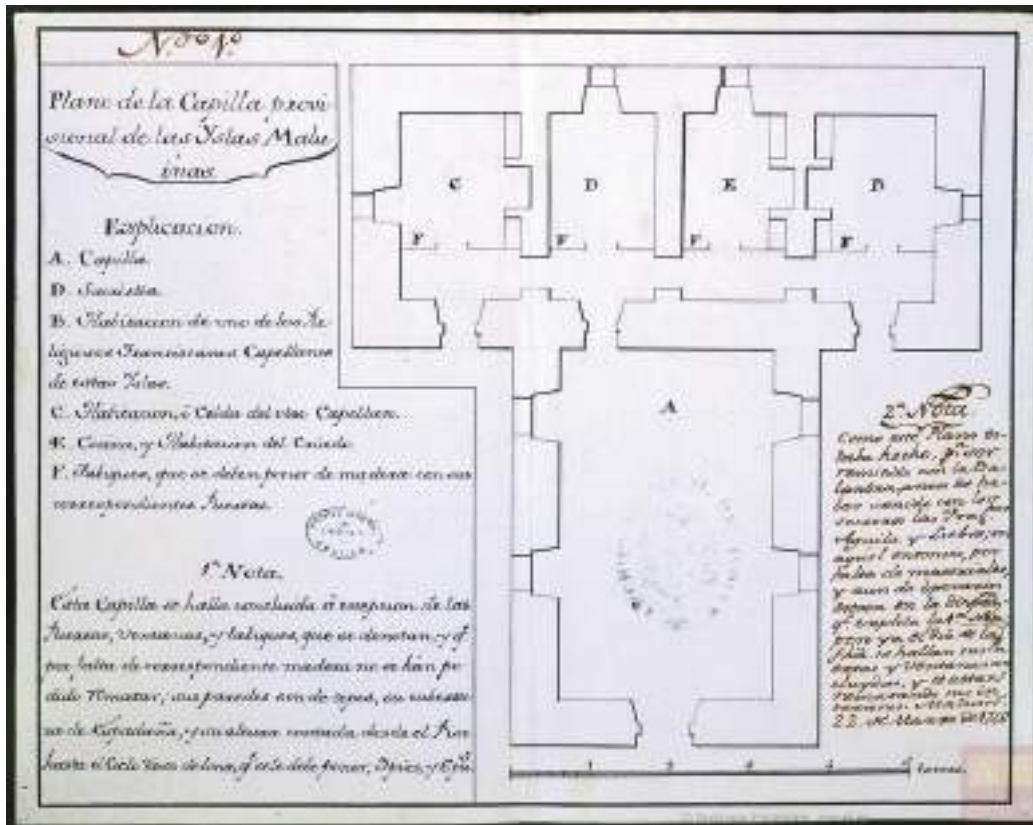 N.º 1.º
Plano de la Capilla provi-
sional de las Yslas Malu-
inas.
Explicacion.
A. Capilla.
D. Sacristia.
B. Habitacion de uno de los Re-
ligiosos Franciscanos Capellanes
de estas Yslas.
C. Habitacion, ò Celda del otro Capellan.
E. Cocina, y Habitacion del Criado.
F. Tabiques, que se deben poner de madera con sus
correspondientes Puertas.
1.ª Nota.
Esta Capilla se halla concluida à excepcion de las
Puertas, Ventanas, y tabiques, que se denotan, y q.º
por falta de correspondiente madera no se hàn po-
dido rematar, sus paredes son de tepes, su cubier-
ta de Espadaña, y su altura contada desde el
hasta el Cielo raso de lona, q.º se le debe poner,
C
D
E
B
F
F
F
F
A
2.ª Nota.
Como este Plano es-
taba hecho, p.ª ser
remitido con la Ba-
landra, antes de ha-
ber venido con los
socorros las
Aguila, y Liebre, en
aquel entonces, por
falta de materiales,
y aun de operarios
estaba en la
q.º explica la 1.ª Nota
pero ya el dia de la
se hallan sus
y Ventanas con-
cluydas, y
22 de Marzo de
1
2
3
4
5